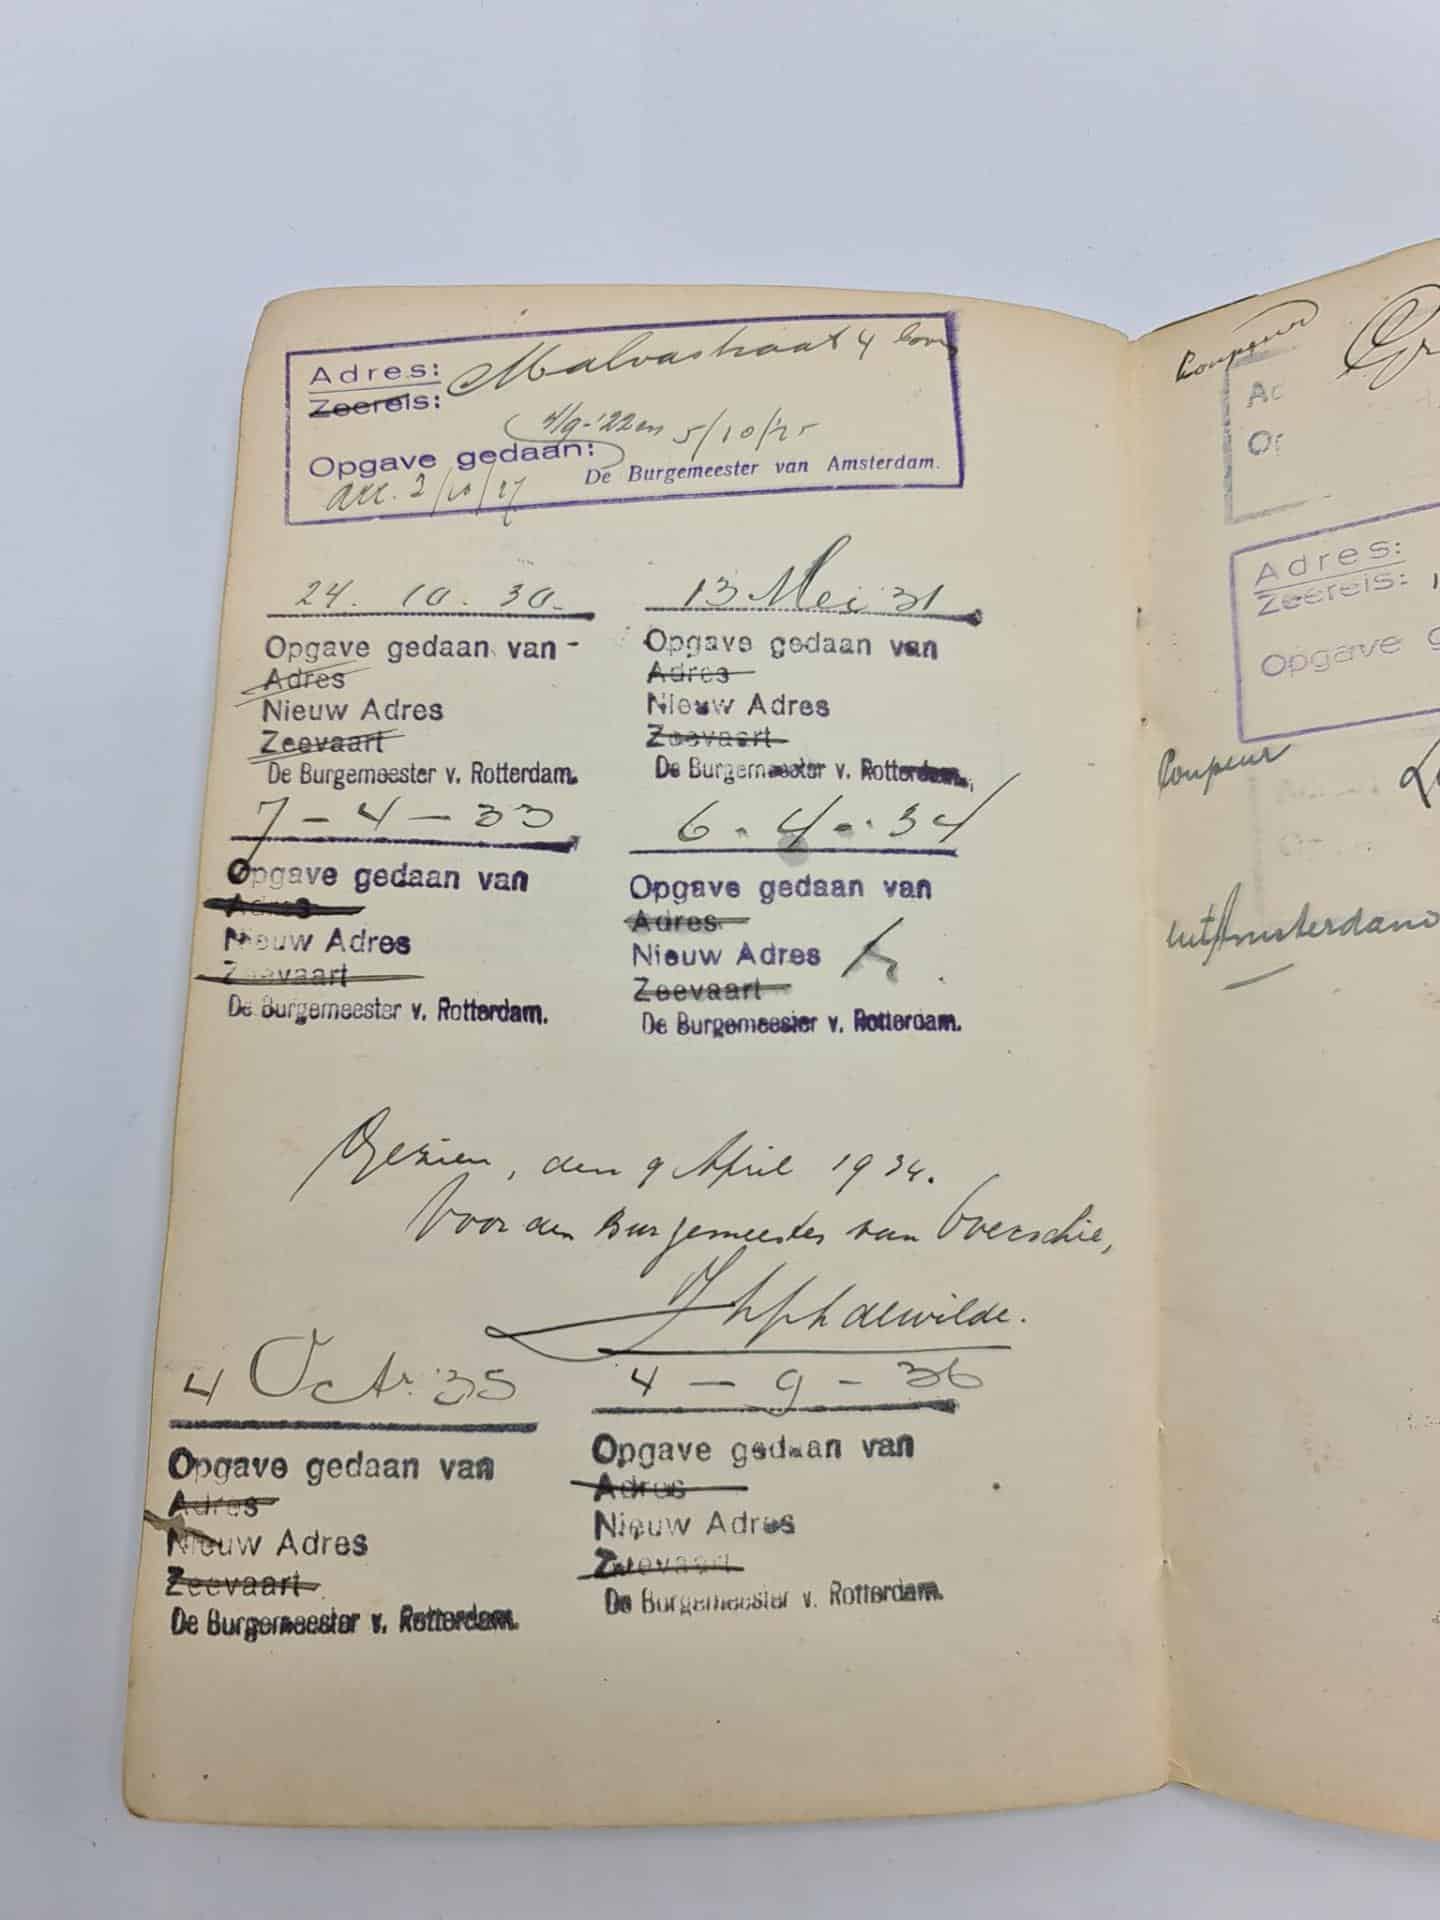 Adres: Malvastraat 4 bov
Zeereis:
4/9-'22 en 5/10/25
Opgave gedaan:
De Burgemeester van Amsterdam.
acc. 3/10/27
24. 10. 30.
Opgave gedaan van -
Adres
Nieuw Adres
Zeevaart
De Burgemeester v. Rotterdam.
13 Mei 31
Opgave gedaan van
Adres
Nieuw Adres
Zeevaart
De Burgemeester v. Rotterdam.
7 - 4 - 33
Opgave gedaan van
Adres
Nieuw Adres
Zeevaart
De Burgemeester v. Rotterdam.
6 . 4 - . 34
Opgave gedaan van
Adres
Nieuw Adres
Zeevaart
De Burgemeester v. Rotterdam.
Gezien, den 9 April 1934.
Voor den Burgemeester van Overschie,
dewilde.
4 Oct. 35
Opgave gedaan van
Adres
Nieuw Adres
Zeevaart
De Burgemeester v. Rotterdam.
4 - 9 - 36
Opgave gedaan van
Adres
Nieuw Adres
Zeevaart
De Burgemeester v. Rotterdam.
Coupeur
Adres:
Zeereis:
Opgave
Coupeur
uit Amsterdam